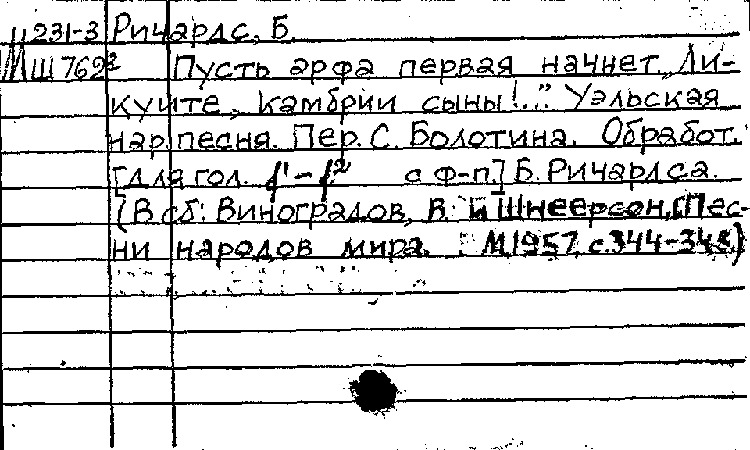 М 231-3 Ричардс, Б.
Ш 769² Пусть арфа первая начнет „Ли-
куйте, камбрии сыны!..” Уэльская
нар. песня. Пер. С. Болотина. Обработ.
[для гол. f¹-f² с ф-п.] Б. Ричардса.
(В сб: Виноградов, В. и Шнеерсон, Г. Пес-
ни народов мира. М, 1957, с. 344-348.)